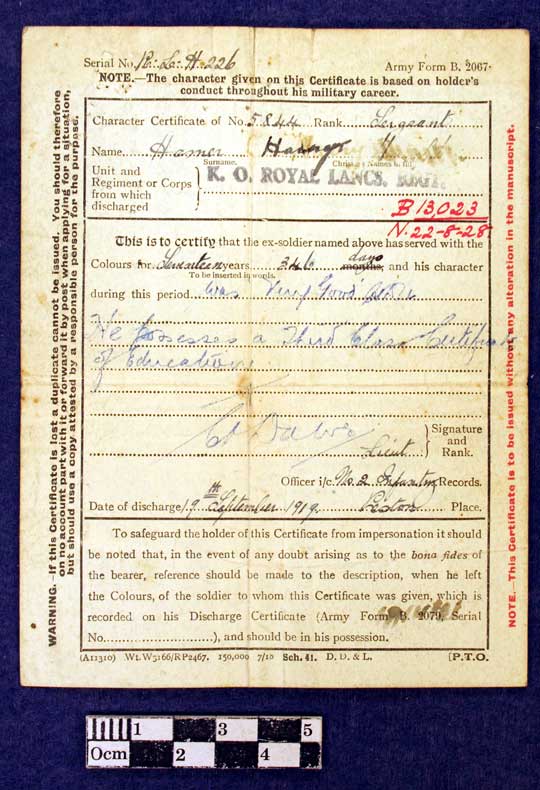 Serial No. R. L. H. 226 Army Form B. 2067.
NOTE.—The character given on this Certificate is based on holder's
conduct throughout his military career.
Character Certificate of No. 5844 Rank Sergeant
Name Hamer Harry
Surname. Christian Names in full
Unit and
Regiment or Corps
from which
discharged
K. O. ROYAL LANCS. REGT.
B 13,023
N. 22-8-28
This is to certify that the ex-soldier named above has served with the
Colours for Seventeen years 346 days months, and his character
To be inserted in words.
during this period was Very Good
He possesses a Third Class Certificate
of Education
Lieut
Signature
and
Rank.
Officer i/c. No. 2 Infantry Records.
Date of discharge 19th September 1919 Preston Place.
To safeguard the holder of this Certificate from impersonation it should
be noted that, in the event of any doubt arising as to the bona fides of
the bearer, reference should be made to the description, when he left
the Colours, of the soldier to whom this Certificate was given, which is
recorded on his Discharge Certificate (Army Form B. 2079, Serial
No. ), and should be in his possession.
(A11310) Wt. W5166/RP2467. 150,000 7/19 Sch. 41. D. D. & L. [P.T.O.
WARNING.—If this Certificate is lost a duplicate cannot be issued. You should therefore
on no account part with it or forward it by post when applying for a situation,
but should use a copy attested by a responsible person for the purpose.
NOTE.—This Certificate is to be issued without any alteration in the manuscript.
1 3 5
0cm 2 4